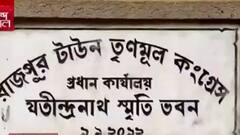 রাজপুর টাউন তৃণমূল কংগ্রেস
প্রধান কার্যালয়
যতীন্দ্রনাথ স্মৃতি ভবন
২.১.২০২২